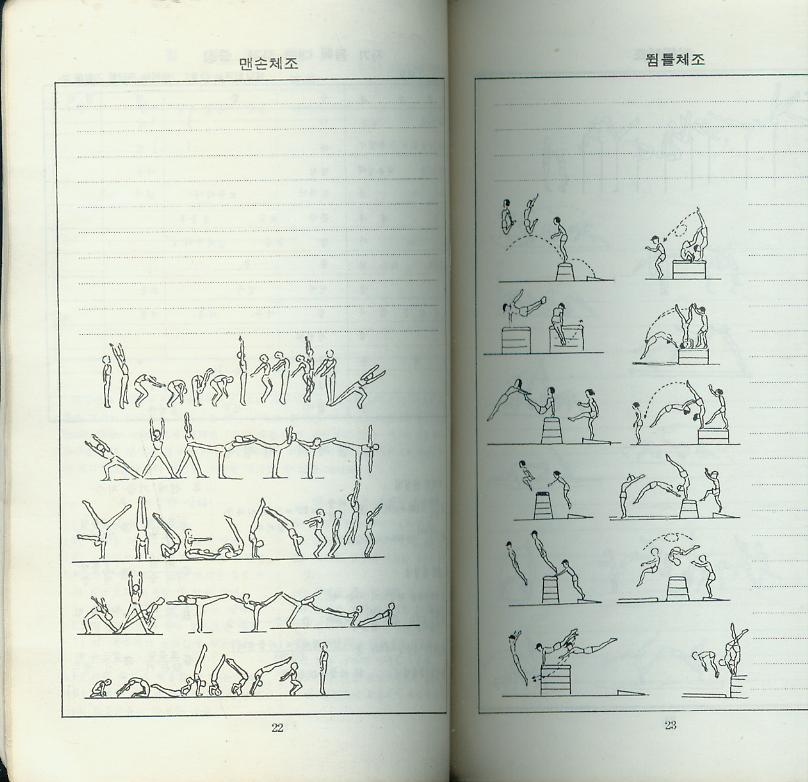 맨손체조
22
뜀틀체조
23